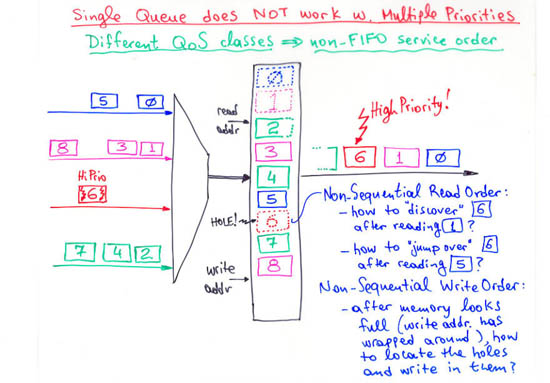 Single Queue does NOT work w. Multiple Priorities
Different QoS classes ⇒ non-FIFO service order
5 0
8 3 1
HiPrio
6
7 4 2
read
addr
HOLE!
write
addr
0
1
2
3
4
5
6
7
8
High Priority!
6 1 0
Non-Sequential Read Order:
- how to "discover" 6
after reading 1 ?
- how to "jump over" 6
after reading 5 ?
Non-Sequential Write Order:
- after memory looks
full (write addr. has
wrapped around), how
to locate the holes
and write in them?